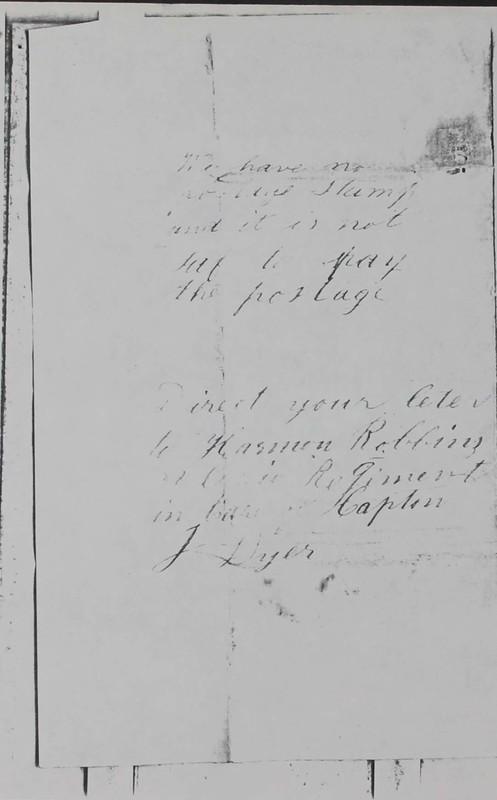 We have no
postage Stamp
and it is not
saf to pay
the postage
Direct your leter
to Harmon Robbins
Regiment
in care Capton
J Dyer